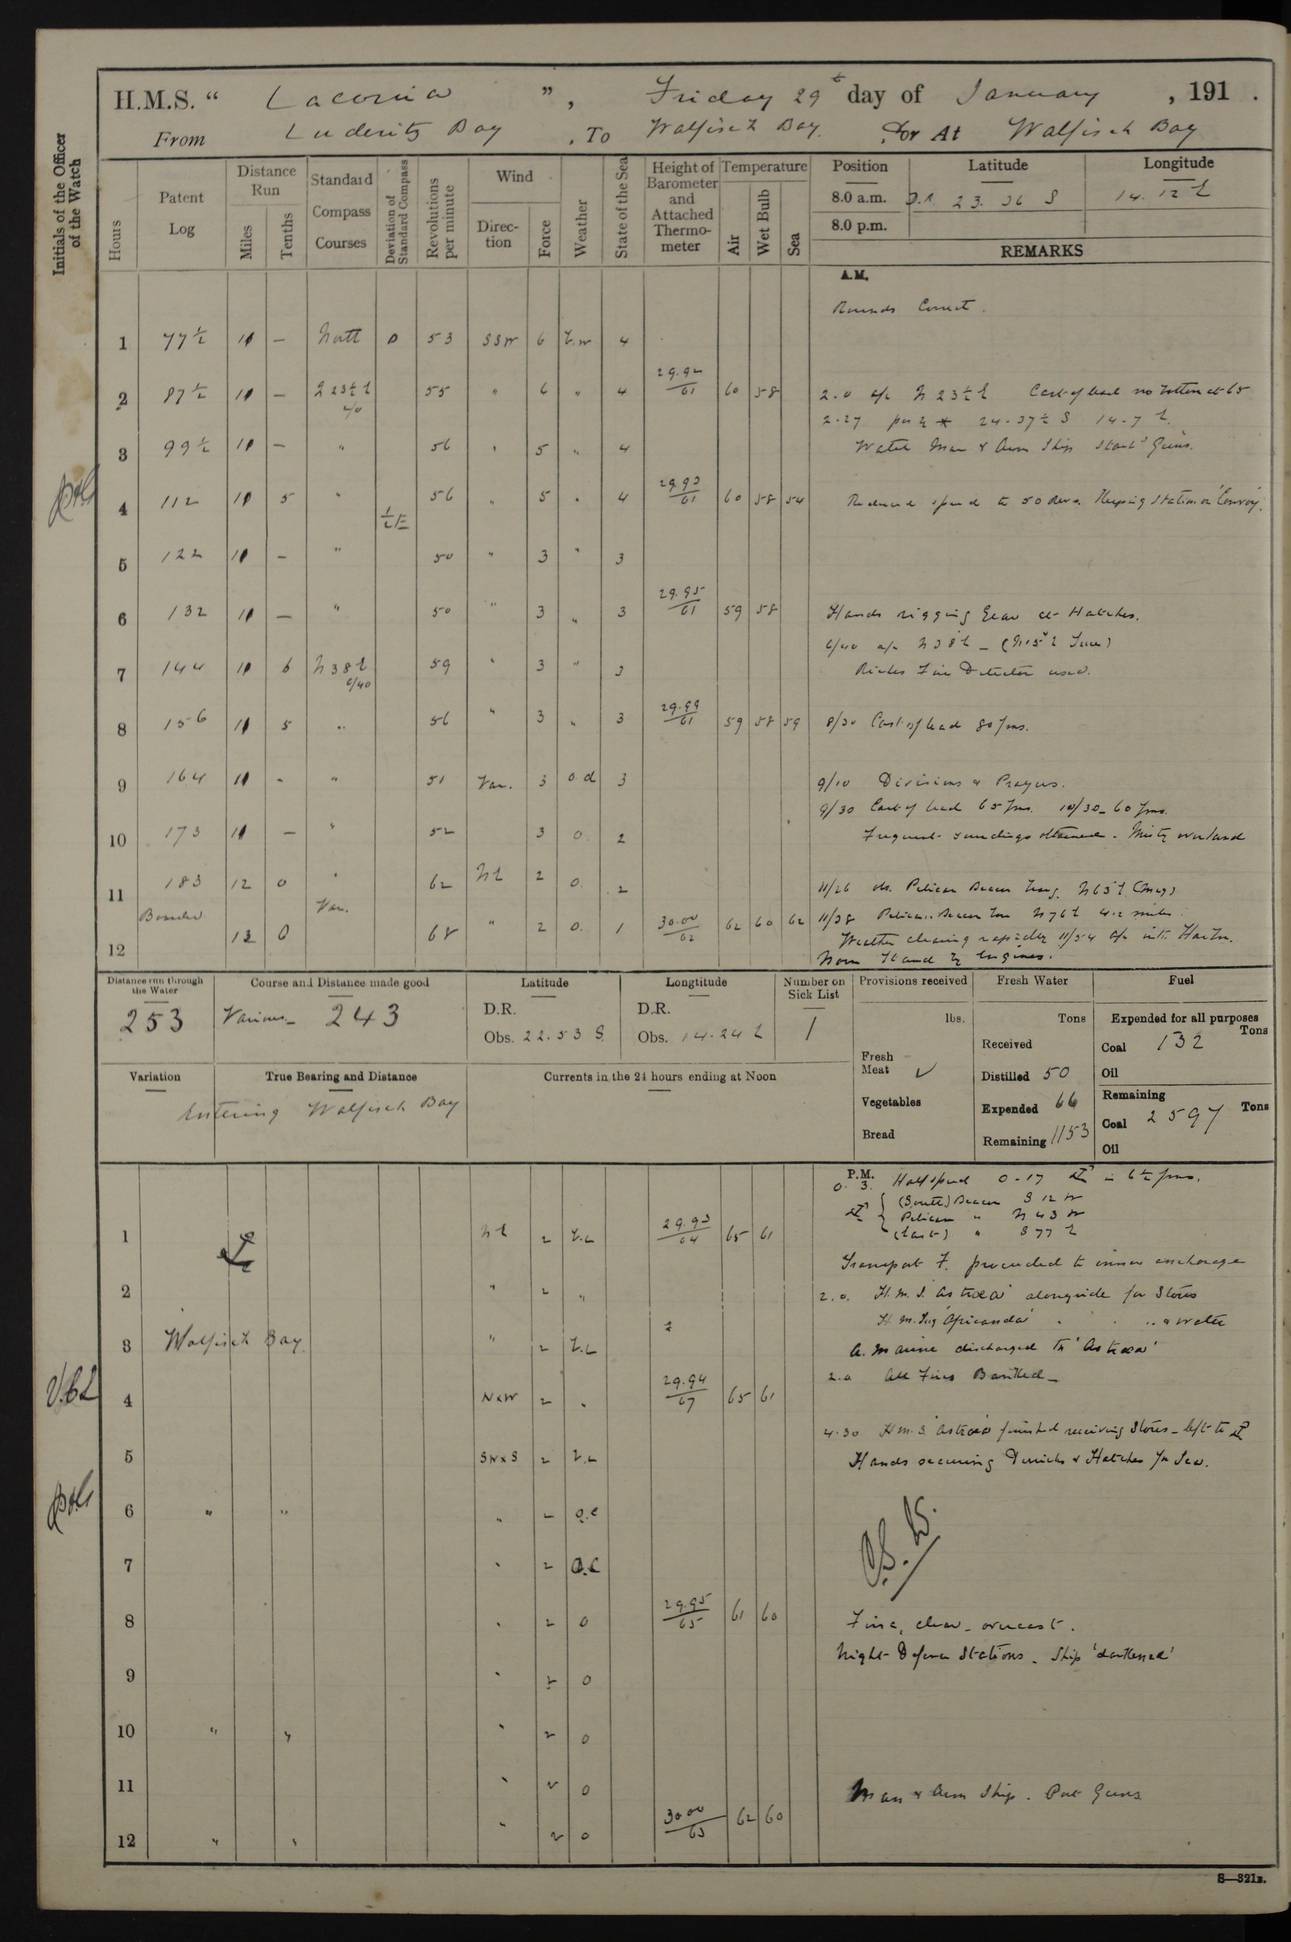 H.M.S. “ Laconia ”, Friday 29th day of January , 191 .
From Luderitz Bay , To Walfisch Bay , or At Walfisch Bay
Initials of the Officer of the Watch
Hours
Patent Log
Distance Run
Miles
Tenths
Standard Compass Courses
Deviation of Standard Compass
Revolutions per minute
Wind
Direction
Force
Weather
State of the Sea
Height of Barometer and Attached Thermometer
Temperature
Air
Wet Bulb
Sea
Position Latitude Longitude
8.0 a.m. D.R. 23. 36 S 14. 12 E
8.0 p.m.
REMARKS
A.M.
Rounds Correct.
1 77½ 11 — North 0 53 SSW 6 4
2 87½ 11 — 55 " 6 " 4 29.92/61 60 58 2.0 a/c N 23½ E Cast of lead no bottom at 65
2.27 24.37½ S 14.7 E.
3 99½ 11 — " 56 " 5 " 4 Watch Man & Arm Ship Starbd Guns.
4 112 11 5 " ½E 56 " 5 " 4 29.93/61 60 58 54 Reduced speed to 50 revs Keeping Station on 'Convoy'.
5 122 11 — " 50 " 3 " 3
6 132 11 — " 50 " 3 " 3 29.95/61 59 58 Hands rigging Gear at Hatches.
6/40 a/c N 38 E — (N 15° E True)
7 144 11 6 N 38 E 6/40 59 " 3 " 3 Riches Fire Detector used.
8 156 11 5 " 56 " 3 " 3 29.99/61 59 58 59 8/30 Cast of lead 80 fms.
9 164 11 - " 51 Var. 3 o.d 3 9/10 Divisions & Prayers.
9/30 Cast of lead 65 fms. 10/30 - 60 fms.
10 173 11 — " 52 3 0. 2 Frequent soundings obtained. Misty over land
11 183 12 0 " 62 NE 2 0. 2 11/26 obs. Pelican Beacon N 65 E (Mag)
12 13 0 Var. 68 " 2 0. 1 30.00/62 62 60 62 11/38 Pelican Beacon N 76 E 4.2 miles.
Weather clearing rapidly 11/54 a/c into Harbr.
Noon Stand by Engines.
Distance run through the Water
253
Course and Distance made good
Various - 243
Latitude
D.R.
Obs. 22.53 S.
Longtitude
D.R.
Obs. 14.24 E
Number on Sick List
1
Provisions received
lbs.
Fresh Meat
Vegetables
Bread
Fresh Water
Tons
Received
Distilled 50
Expended 66
Remaining 1153
Fuel
Expended for all purposes
Tons
Coal 132
Oil
Remaining
Tons
Coal 2597
Oil
Variation
True Bearing and Distance
Entering Walfisch Bay
Currents in the 24 hours ending at Noon
P.M.
0. 3. Half speed 0-17 in 6½ fms.
(South) Beacon S 12 W
Pelican " N 43 W
(East) " S 77 E
1 NE 2 29.93/64 65 61
Transport F. proceeded to inner anchorage
2 " 2 " 2.0. H.M.S. 'Astraea' alongside for Stores
H.M. Tug 'Africander' " " " & water
3 Walfisch Bay. " 2 A. Marine discharged to 'Astraea'
2.0 All Fires Banked —
4 NxW 2 . 29.94/67 65 61
4.30 H.M.S. 'Astraea' finished receiving Stores - left to
5 SWxS 2 Hands securing Derricks & Hatches for Sea.
6 " " " 2 o.c
7 " 2 o.c
8 " 2 0 29.95/65 61 60 Fine, clear - overcast.
Night Defence Stations. Ship 'darkened'
9 " 2 0
10 " " " 2 0
11 " 2 0 Man & Arm Ship. Port Guns
12 " " " 2 0 30.00/63 62 60
S—321B.